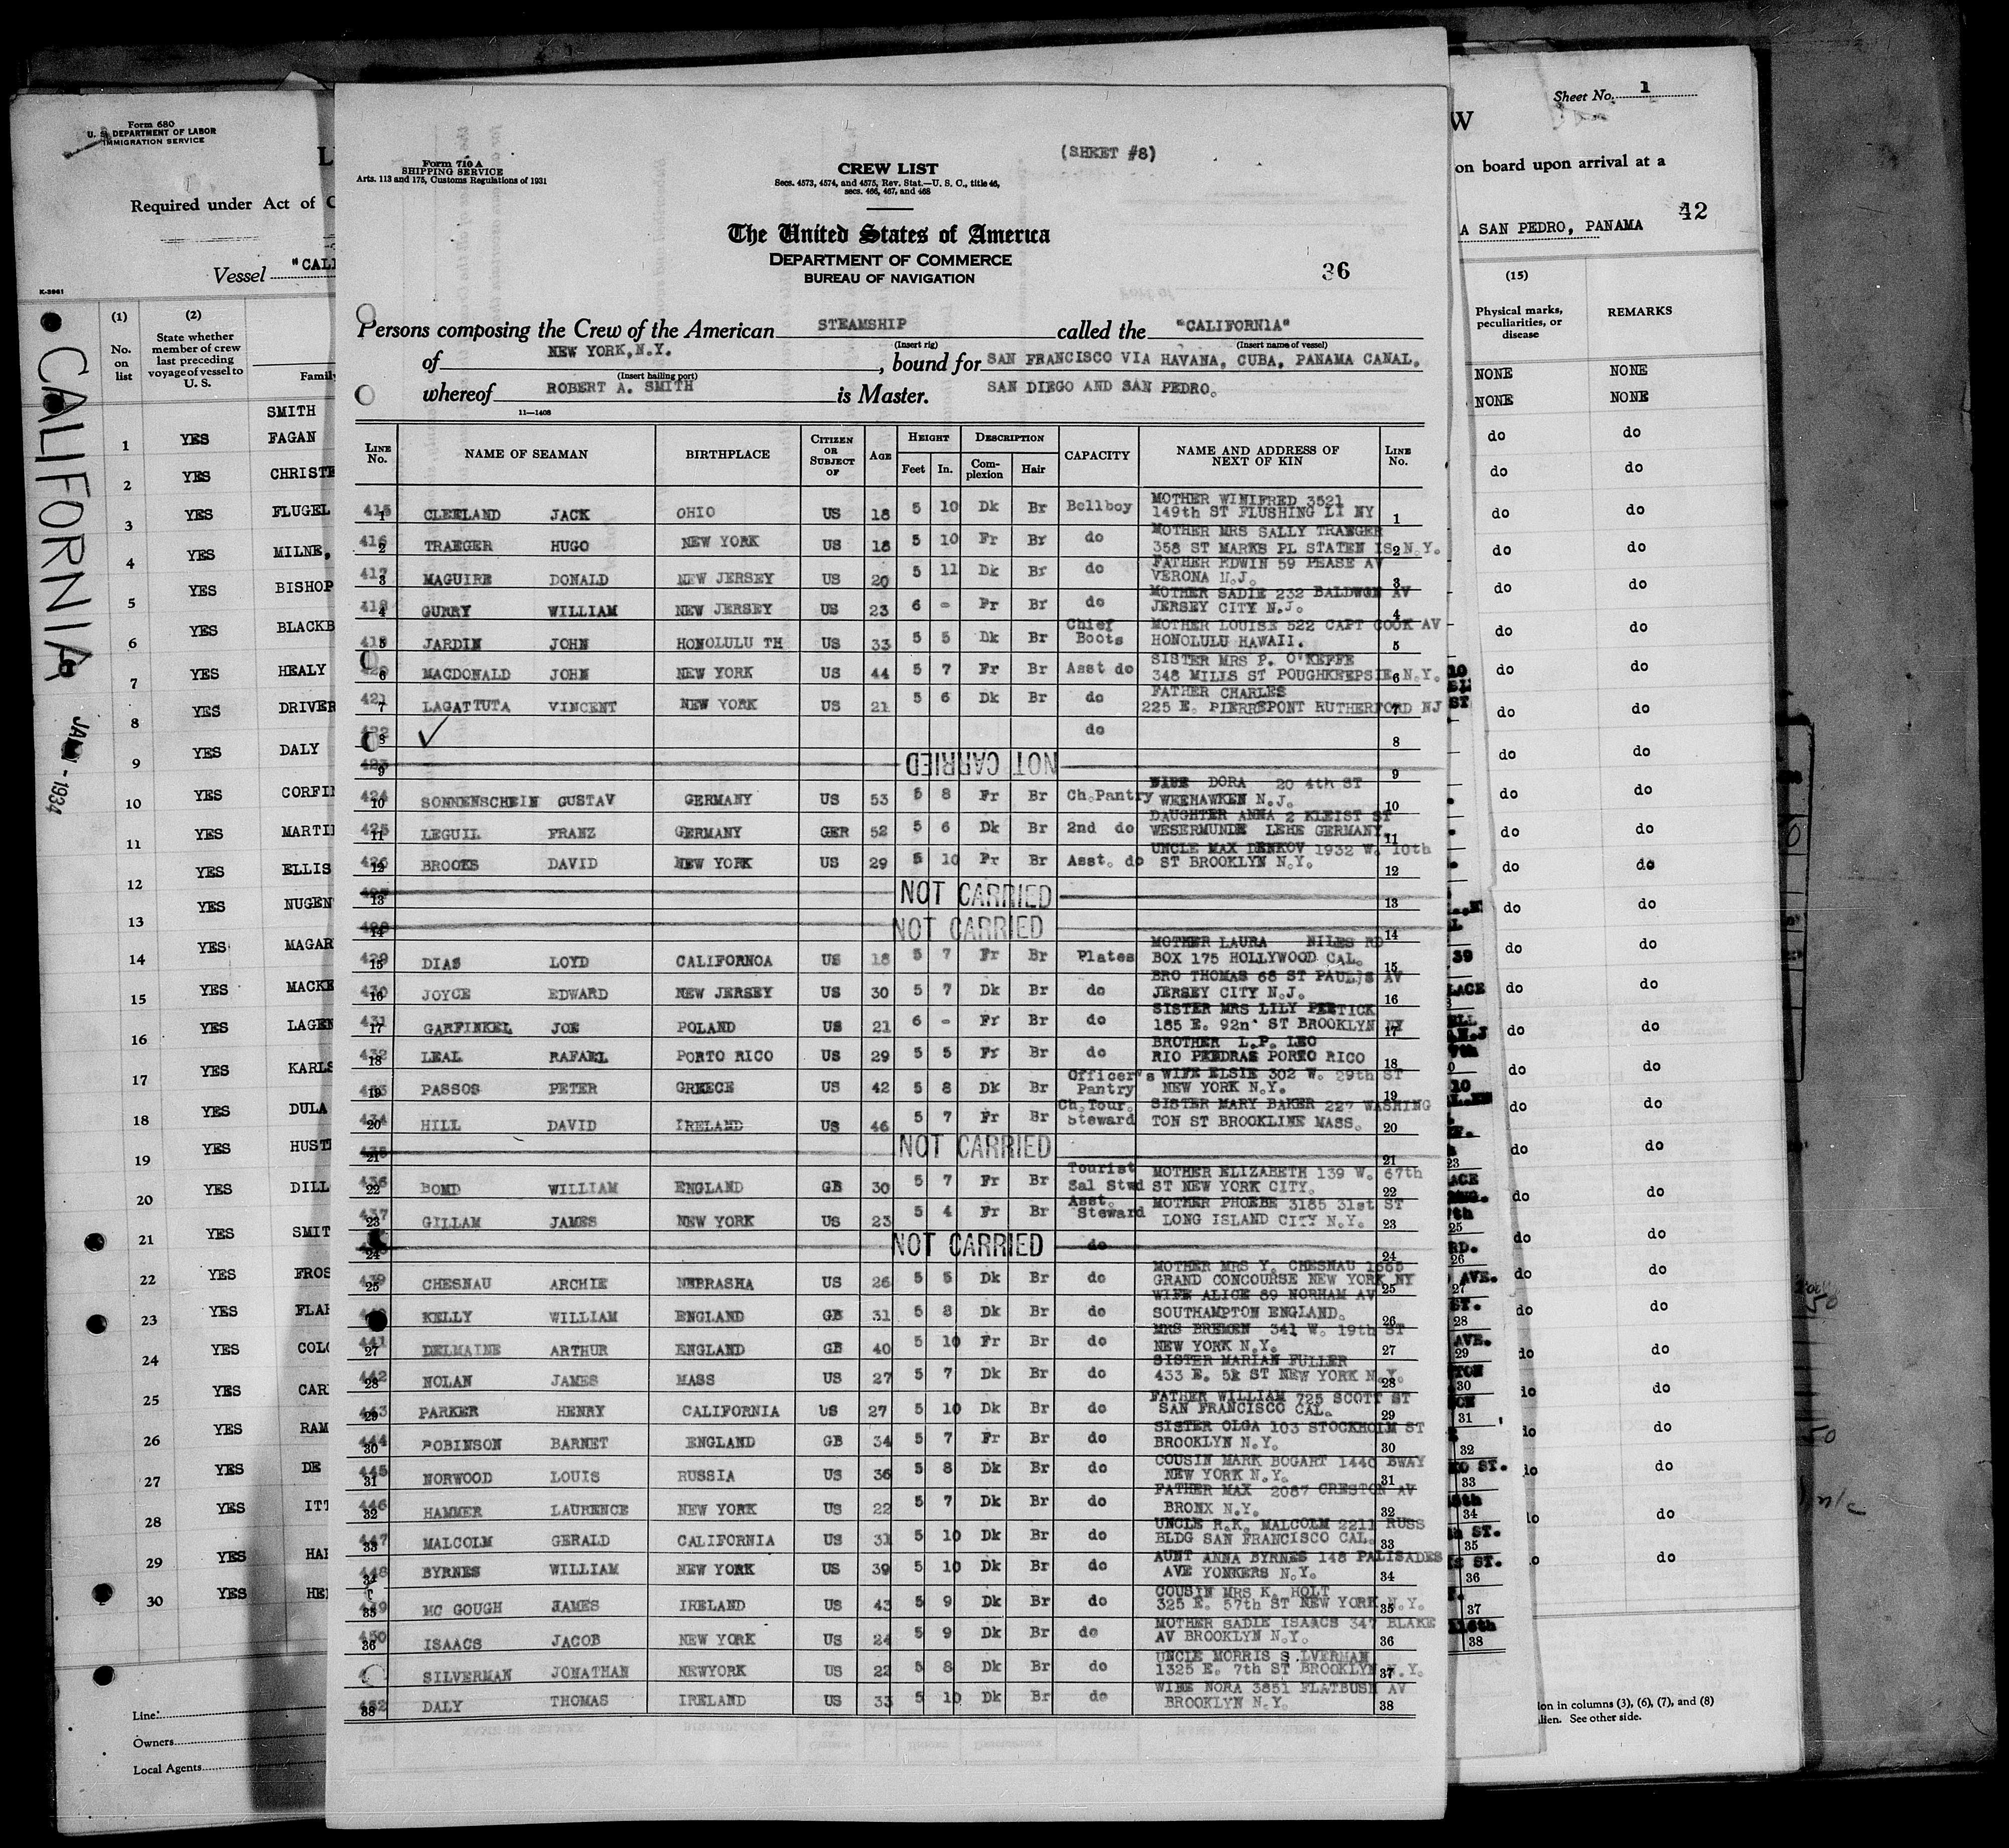 Form 680
U. S. DEPARTMENT OF LABOR
IMMIGRATION SERVICE
Required under Act of
Vessel "CALI
K-2961
(1) (2)
No. on list
State whether member of crew last preceding voyage of vessel to U. S.
Family
SMITH
1 YES FAGAN
2 YES CHRISTE
3 YES FLUGEL
4 YES MILNE,
5 YES BISHOP
6 YES BLACKB
7 YES HEALY
8 YES DRIVER
9 YES DALY
10 YES CORFI
11 YES MARTI
12 YES ELLIS
13 YES NUGEN
14 YES MAGAR
15 YES MACKE
16 YES LAGEN
17 YES KARLS
18 YES DULA
19 YES HUST
20 YES DILL
21 YES SMIT
22 YES FROS
23 YES FLAH
24 YES COLO
25 YES CAR
26 YES RAM
27 YES DE
28 YES ITT
29 YES HAL
30 YES HE
Line
Owners
Local Agents
CALIFORNIA
JAN - 1934
Form 710 A
SHIPPING SERVICE
Arts. 113 and 175, Customs Regulations of 1931
(SHEET #8)
CREW LIST
Secs. 4573, 4574, and 4575, Rev. Stat.—U. S. C., title 46,
secs. 466, 467, and 468
The United States of America
DEPARTMENT OF COMMERCE
BUREAU OF NAVIGATION
36
Persons composing the Crew of the American STEAMSHIP called the "CALIFORNIA"
(Insert rig) (Insert name of vessel)
of NEW YORK, N.Y. , bound for SAN FRANCISCO VIA HAVANA, CUBA, PANAMA CANAL,
(Insert hailing port)
whereof ROBERT A. SMITH is Master. SAN DIEGO AND SAN PEDRO.
11—1408
LINE No. NAME OF SEAMAN BIRTHPLACE CITIZEN OR SUBJECT OF AGE HEIGHT Feet In. DESCRIPTION Complexion Hair CAPACITY NAME AND ADDRESS OF NEXT OF KIN LINE No.
415 1 CLEELAND JACK OHIO US 18 5 10 Dk Br Bellboy MOTHER WINIFRED 3521 149th ST FLUSHING LI NY 1
416 2 TRAEGER HUGO NEW YORK US 18 5 10 Fr Br do MOTHER MRS SALLY TRAEGER 358 ST MARKS PL STATEN IS N.Y. 2
417 3 MAGUIRE DONALD NEW JERSEY US 20 5 11 Dk Br do FATHER EDWIN 59 PEASE AV VERONA N.J. 3
418 4 GURRY WILLIAM NEW JERSEY US 23 6 - Fr Br do MOTHER SADIE 232 BALDWON AV JERSEY CITY N.J. 4
5 JARDIN JOHN HONOLULU TH US 33 5 5 Dk Br Chief Boots MOTHER LOUISE 522 CAPT COOK AV HONOLULU HAWAII. 5
6 MACDONALD JOHN NEW YORK US 44 5 7 Fr Br Asst do SISTER MRS P. O'KEFFE 348 MILLS ST POUGHKEEPSIE N.Y. 6
421 7 LAGATTUTA VINCENT NEW YORK US 21 5 6 Dk Br do FATHER CHARLES 225 E. PIERREPONT RUTHERFORD NJ 7
422 8 ✓ do 8
423 9 NOT CARRIED 9
424 10 SONNENSCHEIN GUSTAV GERMANY US 53 5 8 Fr Br Ch. Pantry WIFE DORA 20 4th ST WEEHAWKEN N.J. 10
425 11 LEGUIL FRANZ GERMANY GER 52 5 6 Dk Br 2nd do DAUGHTER ANNA 2 KLEIST ST WESERMUNDE LEHE GERMANY. 11
426 12 BROOKS DAVID NEW YORK US 29 5 10 Fr Br Asst. do UNCLE MAX DENKOV 1932 W. 10th ST BROOKLYN N.Y. 12
13 NOT CARRIED 13
14 NOT CARRIED 14
429 15 DIAS LOYD CALIFORNOA US 18 5 7 Fr Br Plates MOTHER LAURA NILES RD BOX 175 HOLLYWOOD CAL. 15
430 16 JOYCE EDWARD NEW JERSEY US 30 5 7 Dk Br do BRO THOMAS 68 ST PAUL)S AV JERSEY CITY N.J. 16
431 17 GARFINKEL JOE POLAND US 21 6 - Fr Br do SISTER MRS LILY PERTICK 185 E. 92n ST BROOKLYN NY 17
432 18 LEAL RAFAEL PORTO RICO US 29 5 5 Fr Br do BROTHER L.P. LEO RIO PEEDRAS PORTO RICO 18
433 19 PASSOS PETER GREECE US 42 5 8 Dk Br Officer's Pantry WIFE ELSIE 302 W. 29th ST NEW YORK N.Y. 19
434 20 HILL DAVID IRELAND US 46 5 7 Fr Br Ch. Tour. Steward SISTER MARY BAKER 227 WASHING TON ST BROOKLINE MASS. 20
435 21 NOT CARRIED 21
436 22 BOND WILLIAM ENGLAND GB 30 5 7 Fr Br Tourist Sal Stwd MOTHER ELIZABETH 139 W. 67th ST NEW YORK CITY. 22
437 23 GILLAM JAMES NEW YORK US 23 5 4 Fr Br Asst. Steward MOTHER PHOEBE 3185 31st ST LONG ISLAND CITY N.Y. 23
24 NOT CARRIED do 24
439 25 CHESNAU ARCHIE NEBRASHA US 26 5 5 Dk Br do MOTHER MRS Y. CHESNAU 1665 GRAND CONCOURSE NEW YORK NY 25
KELLY WILLIAM ENGLAND GB 31 5 8 Dk Br do WIFE ALICE 89 NORHAM AV SOUTHAMPTON ENGLAND. 26
441 27 DELMAINE ARTHUR ENGLAND GB 40 5 10 Fr Br do MRS BREMEN 341 W. 19th ST NEW YORK N.Y. 27
442 28 NOLAN JAMES MASS US 27 5 7 Dk Br do SISTER MARIAN FULLER 433 E. 5k ST NEW YORK N.Y. 28
443 29 PARKER HENRY CALIFORNIA US 27 5 10 Dk Br do FATHER WILLIAM 725 SCOTT ST SAN FRANCISCO CAL. 29
444 30 ROBINSON BARNET ENGLAND GB 34 5 7 Fr Br do SISTER OLGA 103 STOCKHOLM ST BROOKLYN N.Y. 30
445 31 NORWOOD LOUIS RUSSIA US 36 5 8 Dk Br do COUSIN MARK BOGART 1440 BWAY NEW YORK N.Y. 31
446 32 HAMMER LAURENCE NEW YORK US 22 5 7 Dk Br do FATHER MAX 2087 CRESTON AV BRONX N.Y. 32
447 33 MALCOLM GERALD CALIFORNIA US 31 5 10 Dk Br do UNCLE R.K. MALCOLM 2211 RUSS BLDG SAN FRANCISCO CAL. 33
448 34 BYRNES WILLIAM NEW YORK US 39 5 10 Dk Br do AUNT ANNA BYRNES 148 PALISADES AVE YONKERS N.Y. 34
449 35 MC GOUGH JAMES IRELAND US 43 5 9 Dk Br do COUSIN MRS K. HOLT 325 E. 57th ST NEW YORK N.Y. 35
450 36 ISAACS JACOB NEW YORK US 24 5 9 Dk Br do MOTHER SADIE ISAACS 347 BLAKE AV BROOKLYN N.Y. 36
SILVERMAN JONATHAN NEWYORK US 22 5 8 Dk Br do UNCLE MORRIS S LVERMAN 1325 E. 7th ST BROOKLYN N.Y. 37
452 38 DALY THOMAS IRELAND US 33 5 10 Dk Br do WIFE NORA 3851 FLATBUSH AV BROOKLYN N.Y. 38
Sheet No. 1
W
on board upon arrival at a
42
A SAN PEDRO, PANAMA
(15)
Physical marks, peculiarities, or disease
REMARKS
NONE NONE
NONE NONE
do do
do do
do do
do do
do do
do do
do do
do do
do do
do do
do do
do do
do do
do do
do do
do do
do do
do do
do do
do do
do do
do do
do do
do do
do do
do do
do do
do do
do do
do do
ion in columns (3), (6), (7), and (8)
alien. See other side.